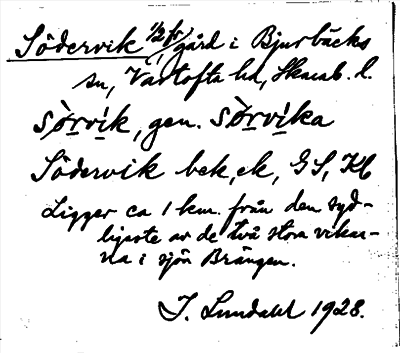 Södervik 1/2 kr gård i Bjurbäcks
sn, Vartofta hd, Skarab. l.
sòrvik, gen. sòrvika
Södervik bek, ek, GS, Kb
Ligger ca 1 km. från den syd-
ligaste av de två stora vikar-
na i sjön Brängen.
J. Lundahl 1928.